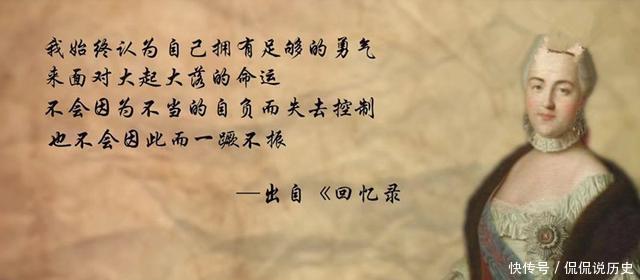 我始终认为自己拥有足够的勇气
来面对大起大落的命运
不会因为不当的自负而失去控制
也不会因此而一蹶不振
—出自《回忆录
快传号／侃侃说历史